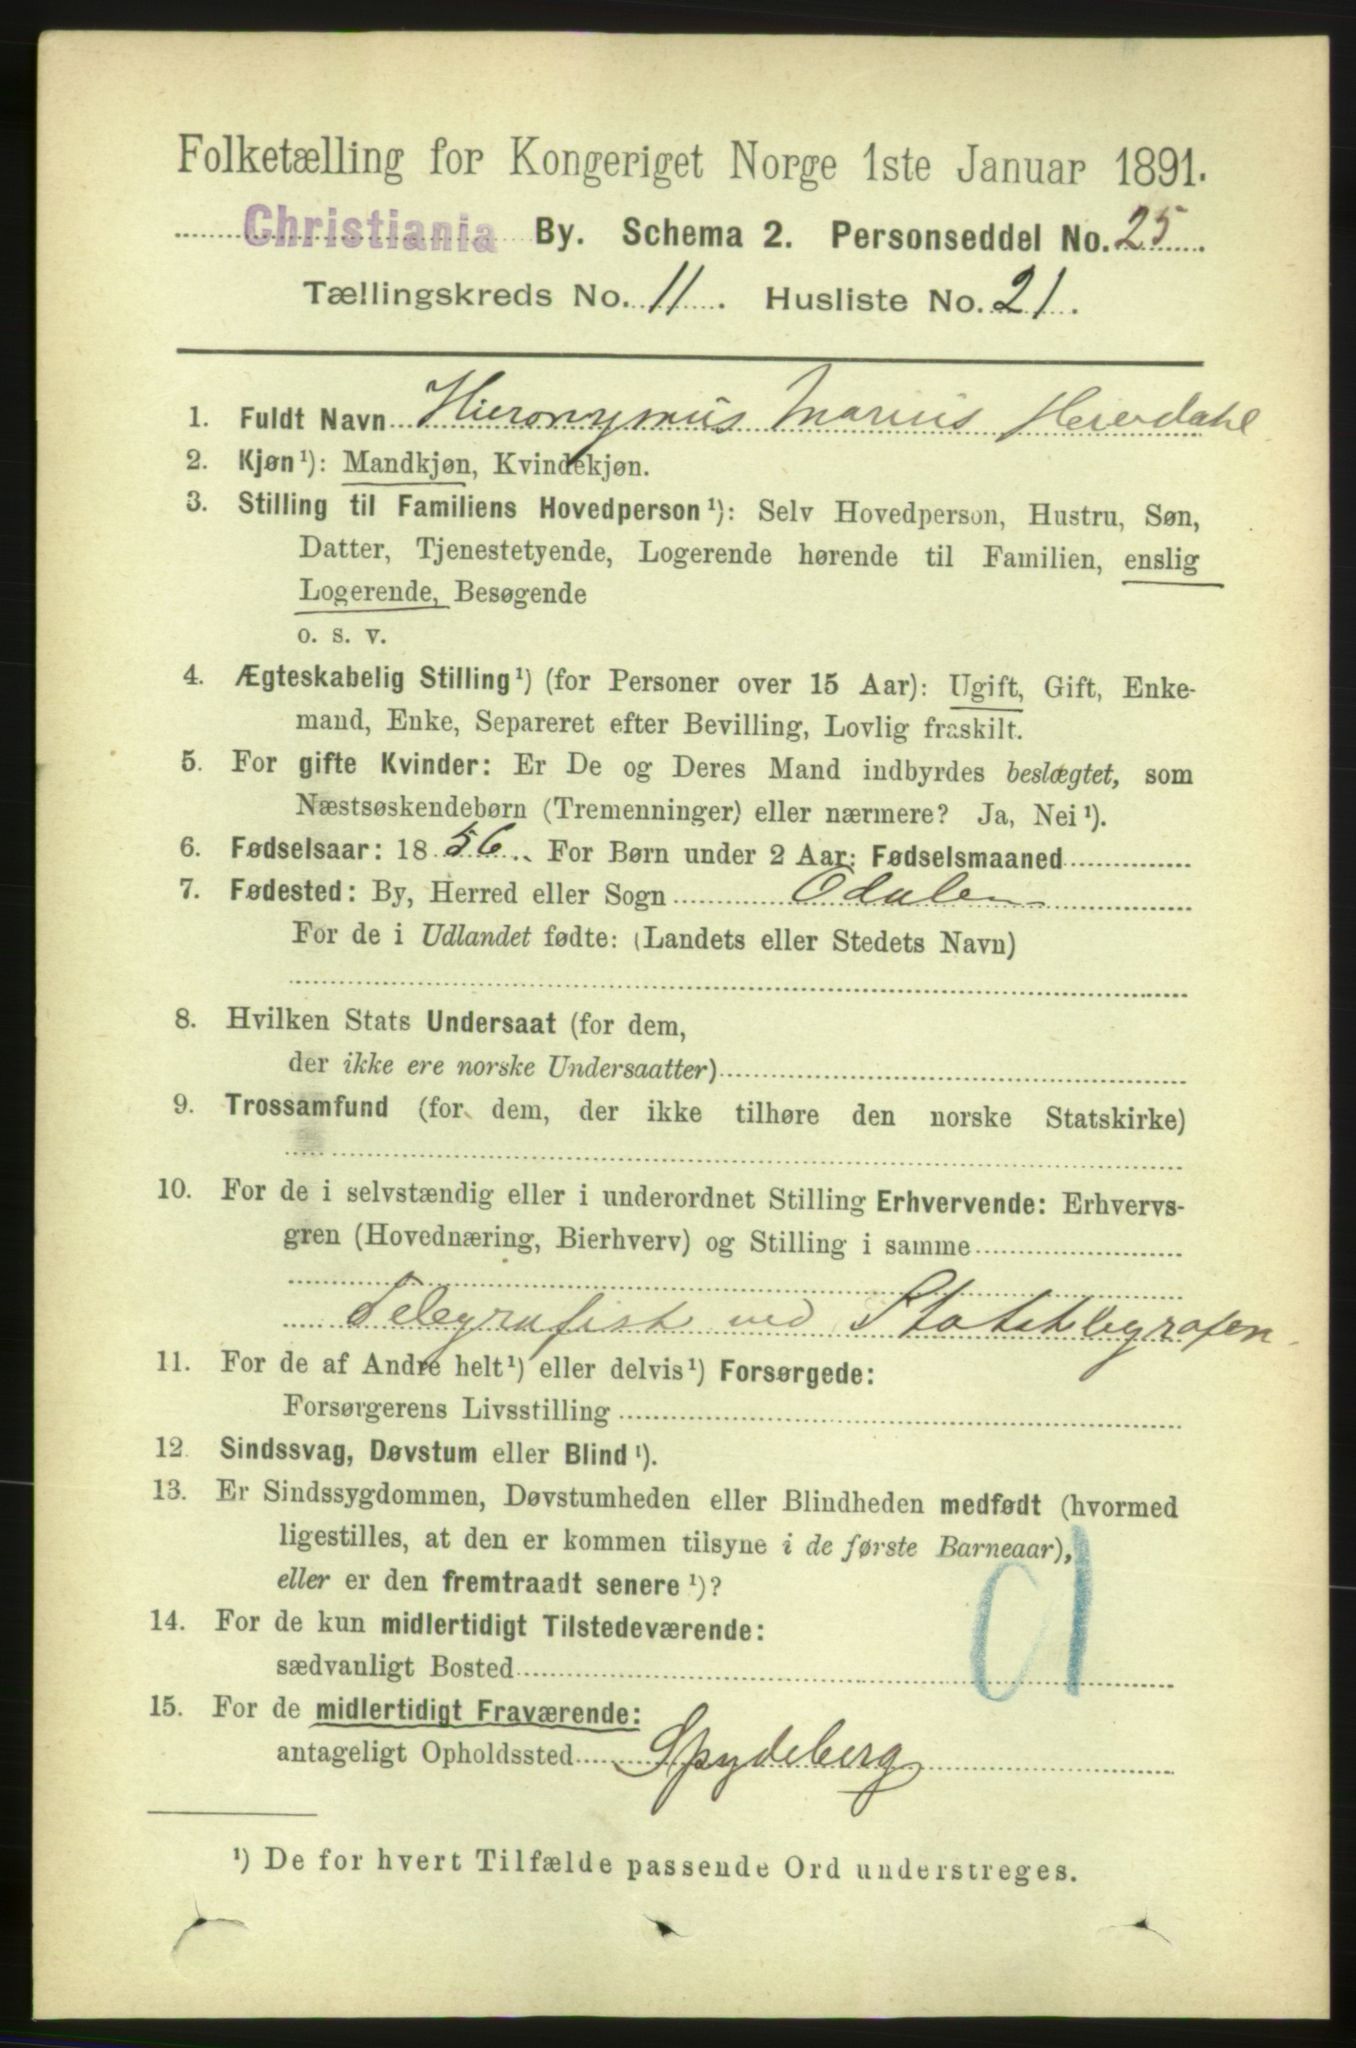 Folketælling for Kongeriget Norge 1ste Januar 1891.
Christiania By. Schema 2. Personseddel No. 25.
Tællingskreds No. 11. Husliste No. 21.
1. Fuldt Navn Hieronymus Marius Heierdahl
2. Kjøn ¹): Mandkjøn, Kvindekjøn.
3. Stilling til Familiens Hovedperson ¹): Selv Hovedperson, Hustru, Søn,
Datter, Tjenestetyende, Logerende hørende til Familien, enslig
Logerende, Besøgende
o. s. v.
4. Ægteskabelig Stilling ¹) (for Personer over 15 Aar): Ugift, Gift, Enke-
mand, Enke, Separeret efter Bevilling, Lovlig fraskilt.
5. For gifte Kvinder: Er De og Deres Mand indbyrdes beslægtet, som
Næstsøskendebørn (Tremenninger) eller nærmere? Ja, Nei ¹).
6. Fødselsaar: 1856. For Børn under 2 Aar: Fødselsmaaned
7. Fødested: By, Herred eller Sogn Odalen
For de i Udlandet fødte: (Landets eller Stedets Navn)
8. Hvilken Stats Undersaat (for dem,
der ikke ere norske Undersaatter)
9. Trossamfund (for dem, der ikke tilhøre den norske Statskirke)
10. For de i selvstændig eller i underordnet Stilling Erhvervende: Erhvervs-
gren (Hovednæring, Bierhverv) og Stilling i samme
Telegrafist ved Statstelegrafen.
11. For de af Andre helt ¹) eller delvis ¹) Forsørgede:
Forsørgerens Livsstilling
12. Sindssvag, Døvstum eller Blind ¹).
13. Er Sindssygdommen, Døvstumheden eller Blindheden medfødt (hvormed
ligestilles, at den er kommen tilsyne i de første Barneaar),
eller er den fremtraadt senere ¹)?
14. For de kun midlertidigt Tilstedeværende:
sædvanligt Bosted
15. For de midlertidigt Fraværende:
antageligt Opholdssted Spydeberg
¹) De for hvert Tilfælde passende Ord understreges.